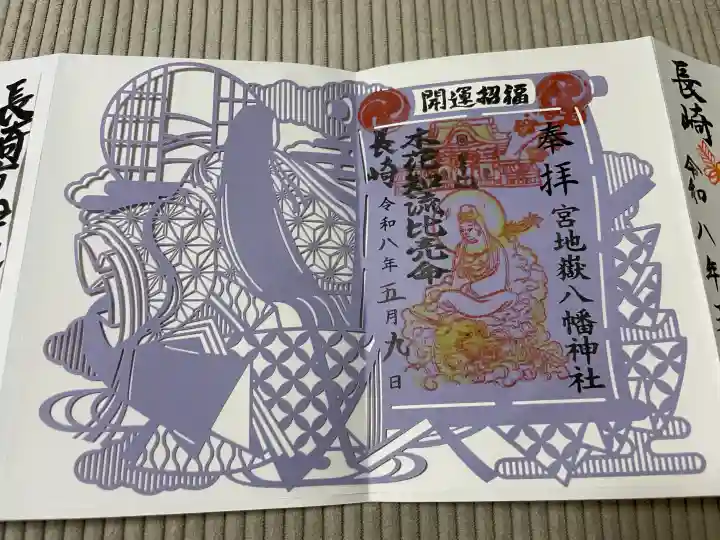 開運招福
奉拝
宮地嶽八幡神社
木花知流比売命
長崎
令和八年五月九日
長崎
令和八年
長崎